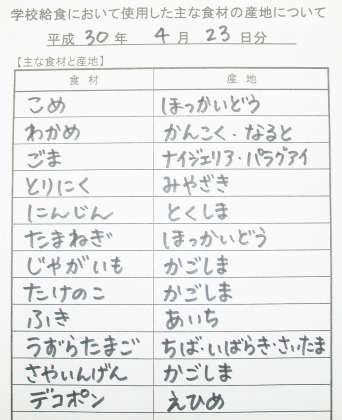 学校給食において使用した主な食材の産地について
平成 30 年 4 月 23 日分
【主な食材と産地】
食 材 産 地
こめ ほっかいどう
わかめ かんこく・なると
ごま ナイジェリア・パラグアイ
とりにく みやざき
にんじん とくしま
たまねぎ ほっかいどう
じゃがいも かごしま
たけのこ かごしま
ふき あいち
うずらたまご ちば・いばらき・さいたま
さやいんげん かごしま
デコポン えひめ